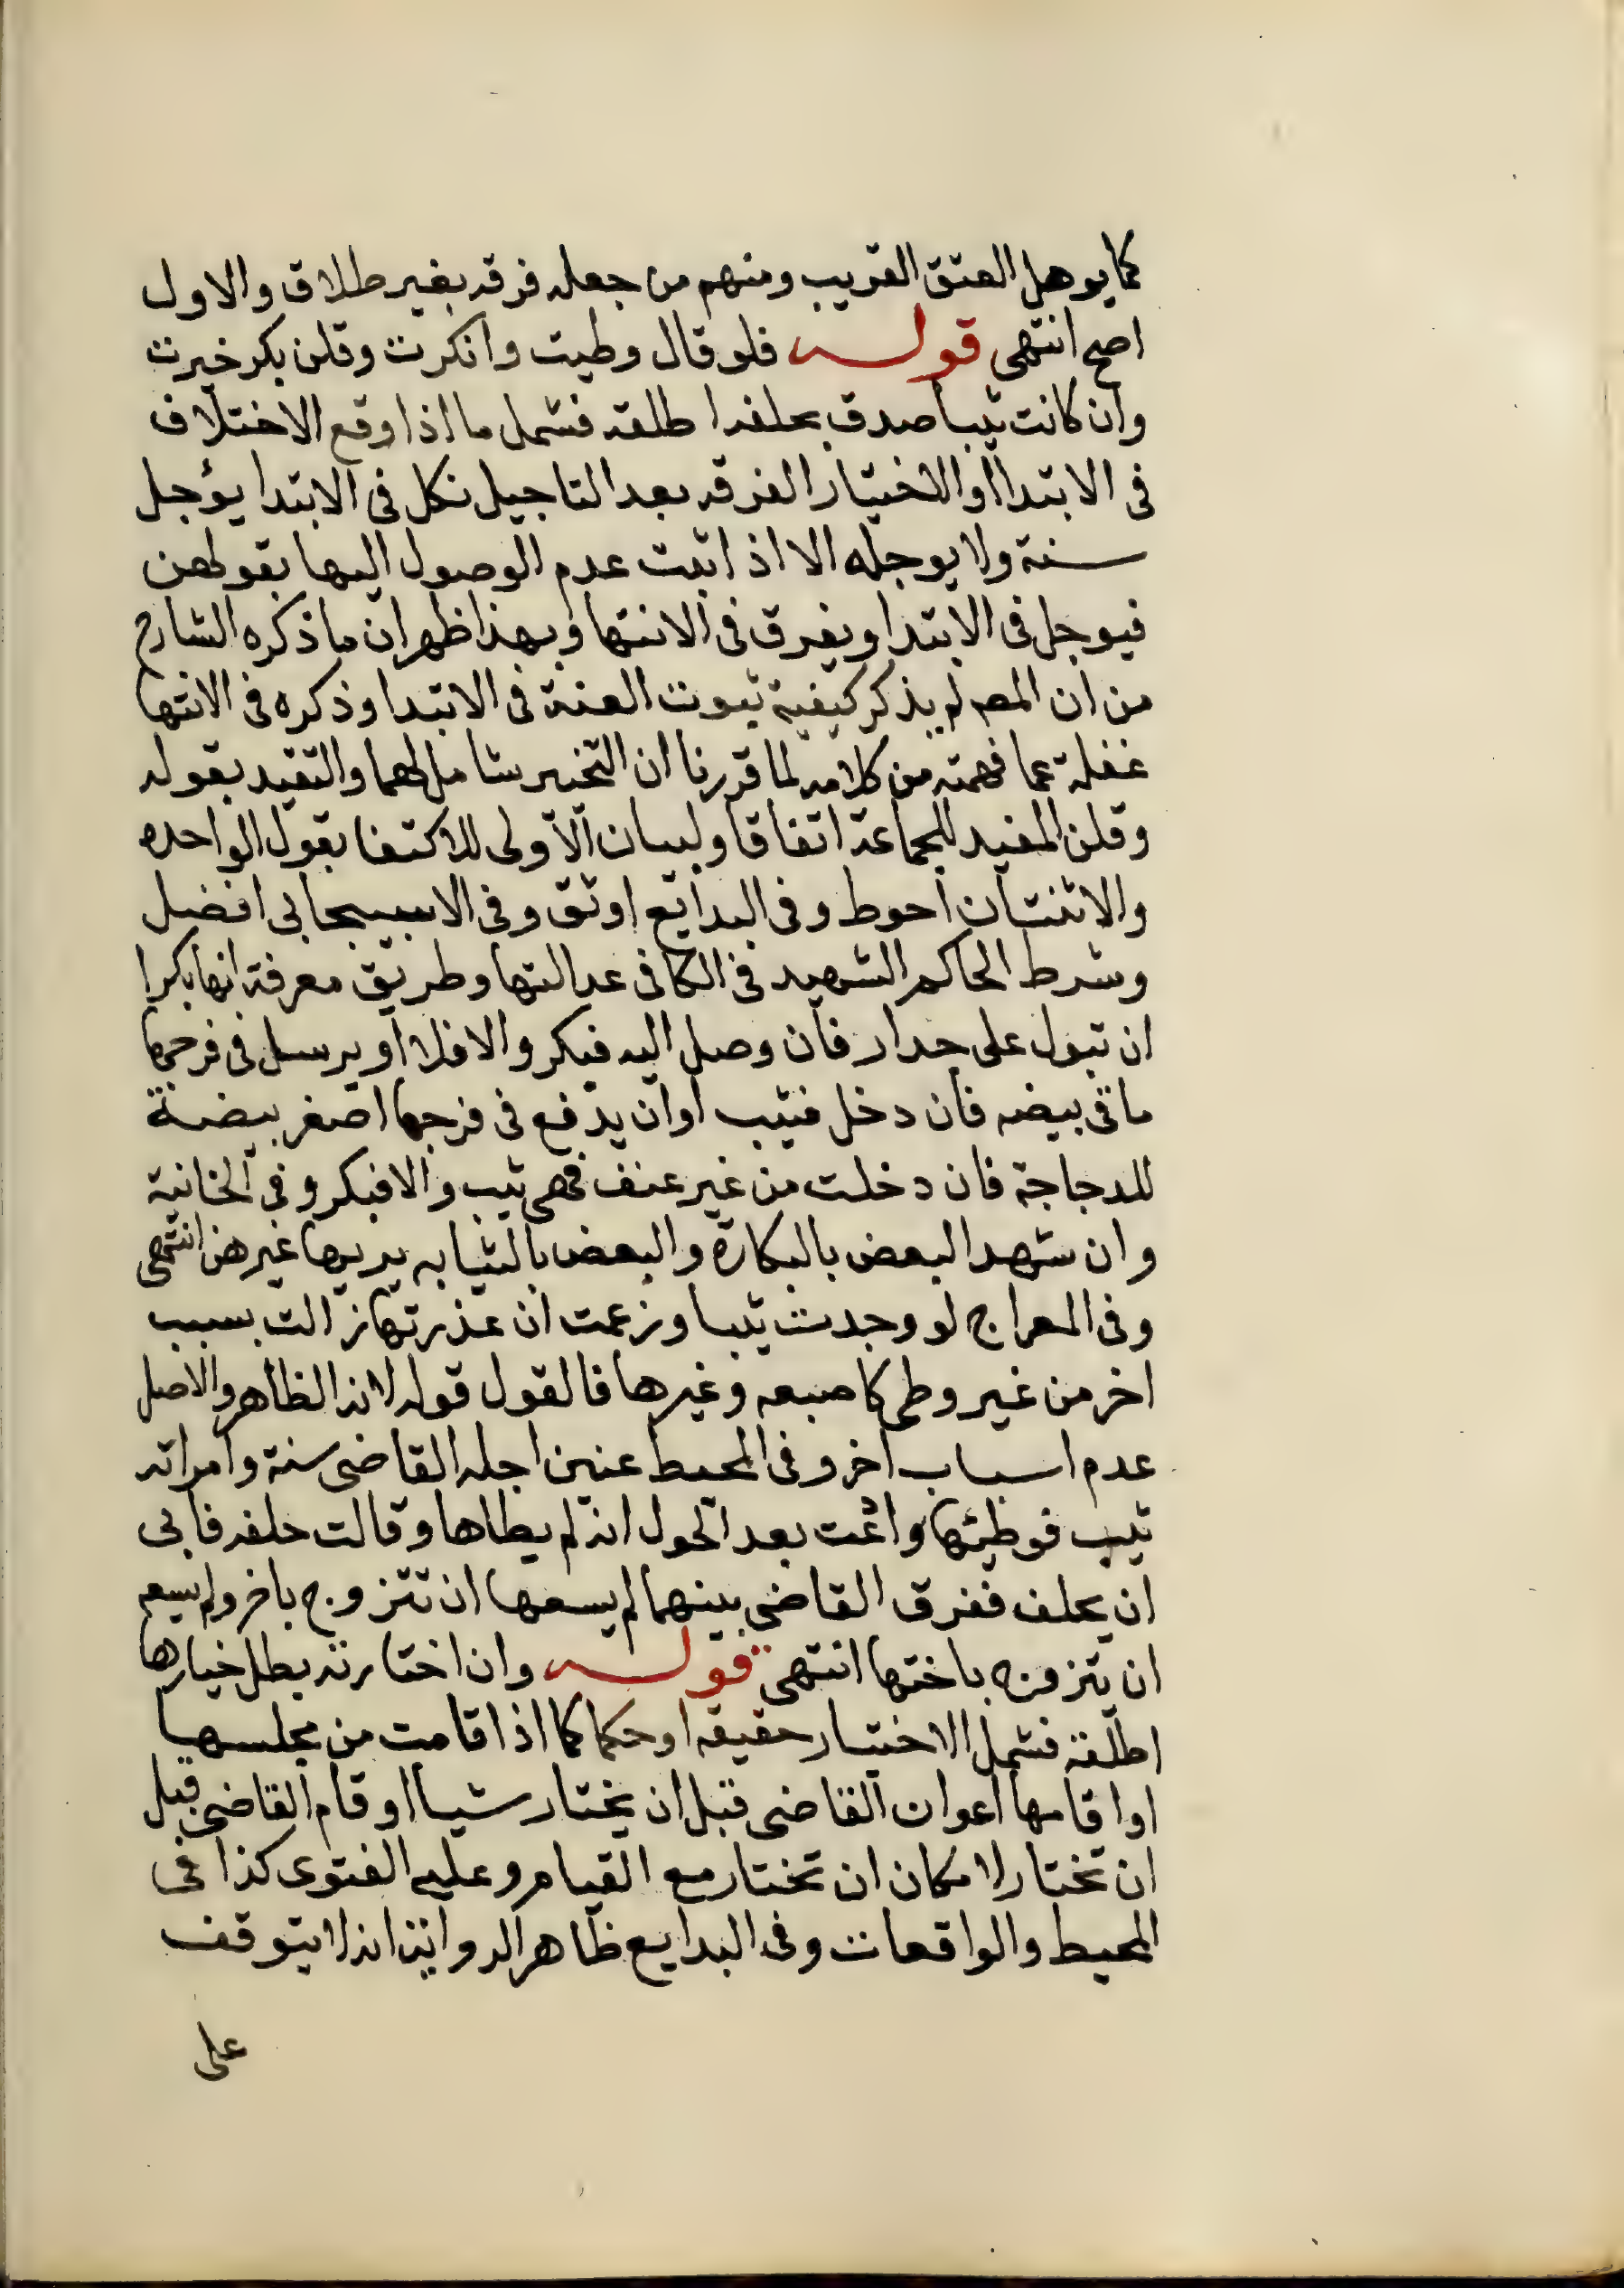 كما يوهل العتق القريب ومنهم من جعله فرقه بغير طلاق والاول
اصح انتهى قوله فلو قال وطيت وانكرت وقلن بكر خيرت
وان كانت ثيبا صدق بحلفه اطلقه فشمل ما اذا وقع الاختلاف
فى الابتدا او الاختيار الفرقه بعد التاجيل نكل فى الابتدا يؤجل
سنة ولا يوجله الا اذا ثبت عدم الوصول اليها بقولهن
فيوجل فى الابتدا ويفرق فى الانتها وبهذا ظهر ان ما ذكره الشارح
من ان المصـ لم يذكر كيفية ثبوت العنة فى الابتدا وذكره فى الانتها
غفلة عما فهمته من كلامه لما قررنا ان التخيير شامل لهما والتقيد بقوله
وقلن المفيد للجماعة اتفاقا ولبيان الاولى للاكتفا بقول الواحده
والاثنتان احوط وفى البدايع اوثق وفى الاسبيجابى افضل
وشرط الحاكم الشهيد فى الكافى عدالتها وطريق معرفة انها بكرا
ان تبول على جدار فان وصل اليه فبكر والا فلا او يرسل فى فرجها
ما فى بيضه فان دخل فثيب او ان يدفع فى فرجها اصغر بيضة
للدجاجة فان دخلت من غير عنف فهى ثيب والا فبكر وفى الخانية
وان شهد البعض بالبكارة والبعض بالثيابه يريها غيرهن انتهى
وفى المعراج لو وجدت ثيبا وزعمت ان عذرتها زالت بسبب
اخر من غير وطى كاصبعه وغيرها فالقول قوله لانه الظاهر والاصل
عدم اسباب اخر وفى المحيط عنين اجله القاضى سنة وامراته
ثيب فوطيها وادعت بعد الحول انه لم يطاها وقالت حلفه فابى
ان يحلف ففرق القاضى بينهما لم يسعها ان تتزوج باخر ولم يسعه
ان يتزوج باختها انتهى قوله وان اختارته بطل خيارها
اطلقه فشمل الاختيار حقيقه او حكما كما اذا قامت من مجلسها
او اقامها اعوان القاضى قبل ان يختار شيا او قام القاضى قبل
ان تختار لامكان ان تختار مع القيام وعليه الفتوى كذا فى
المحيط والواقعات وفى البدايع ظاهر الرواية انه لا يتوقف
على